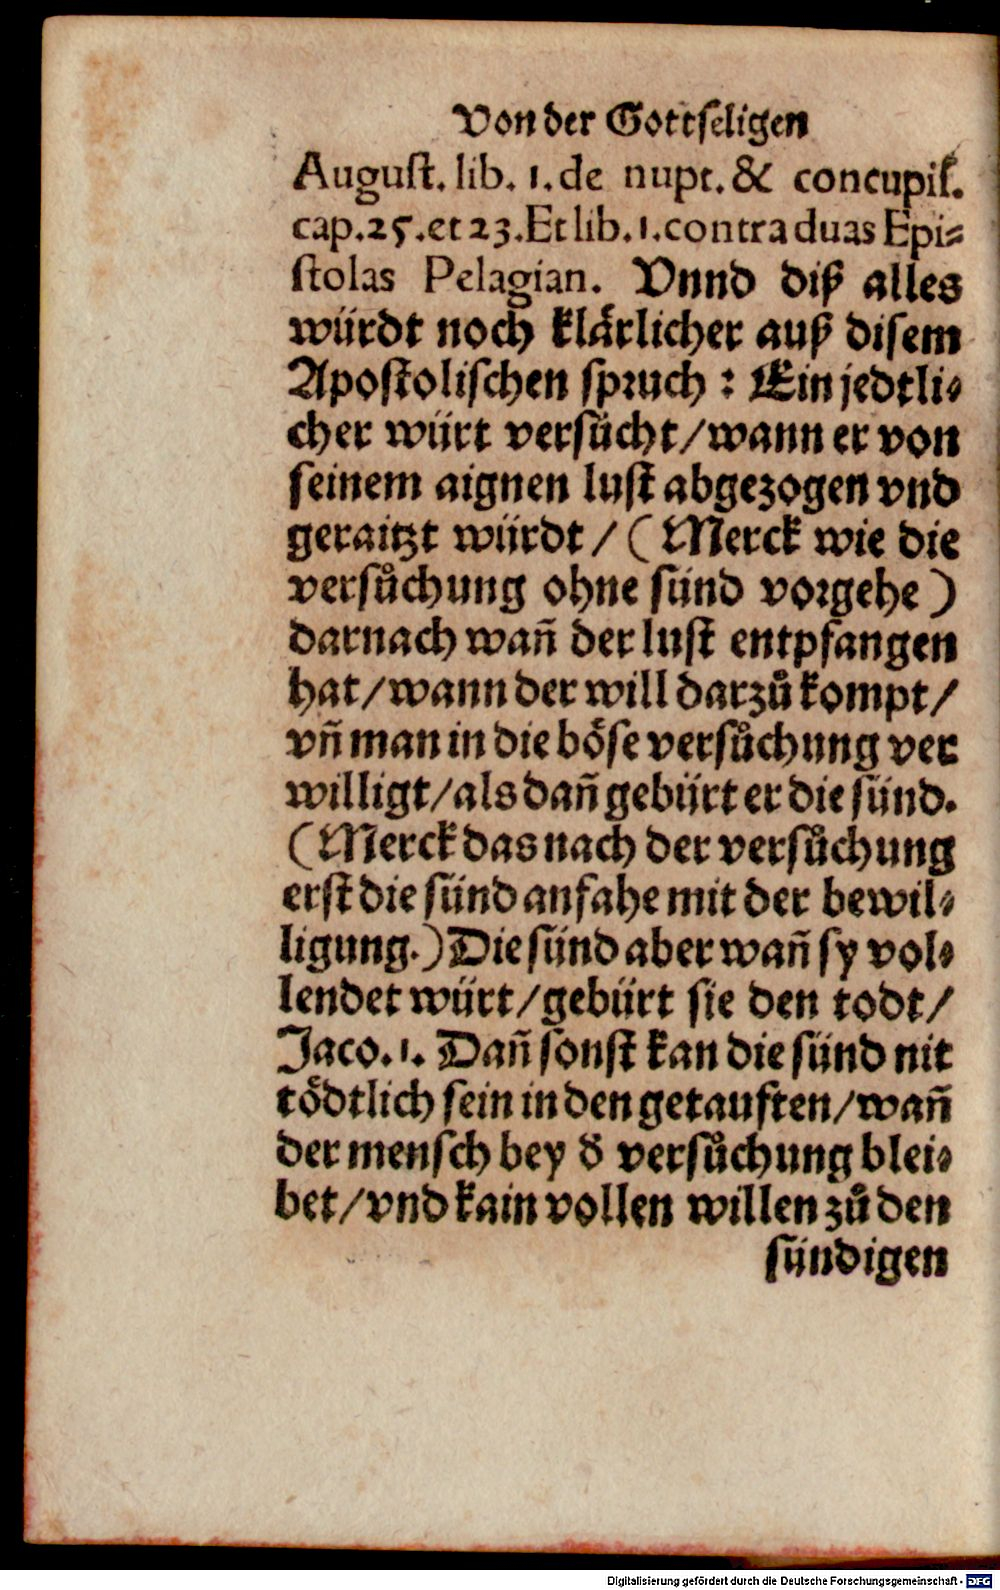 Von der Gottseligen
Auguſt. lib. 1. de nupt. & concupiſ.
cap. 25. et 23. Et lib. 1. contra duas Epi⸗
ſtolas Pelagian. Vnnd diß alles
würdt noch klärlicher auß diſem
Apoſtoliſchen ſpꝛuch : Ein jedtli⸗
cher würt verſücht/ wann er von
ſeinem aignen luſt abgezogen vnd
geraitzt würdt / ( Merck wie die
verſůchung ohne ſünd voꝛgehe )
darnach wañ der luſt entpfangen
hat/ wann der will darzů kompt/
vñ man in die böſe verſůchung ver
willigt/ als dañ gebürt er die ſünd.
( Merck das nach der verſůchung
erſt die ſünd anfahe mit der bewil⸗
ligung.) Die ſünd aber wañ ſy vol⸗
lendet würt/ gebürt ſie den todt/
Jaco. 1. Dañ ſonſt kan die ſünd nit
tödtlich ſein in den getauften/ wañ
der menſch bey d̕ verſůchung blei⸗
bet/ vnd kain vollen willen zů den
ſündigen
Digitalisierung gefördert durch die Deutsche Forschungsgemeinschaft - DFG